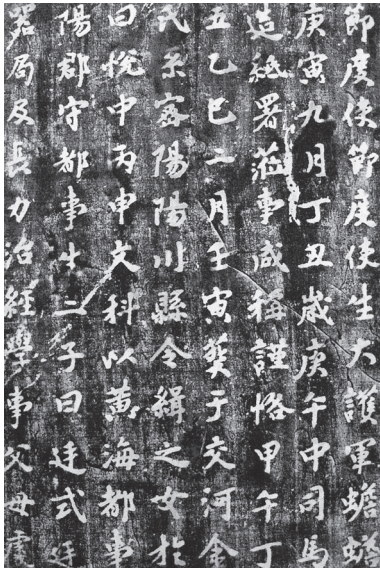 節度使節度使生大護軍蟾蟾
庚寅九月丁丑歲庚午中司馬
造紙署蒞事咸稱謹恪甲午丁
五乙巳二月壬寅葬于交河金
氏系密陽陽川縣令緝之女於
曰悅中丙申文科以黃海都事
陽郡守都事生二子曰廷式廷
器局及長力治經學事父母虔